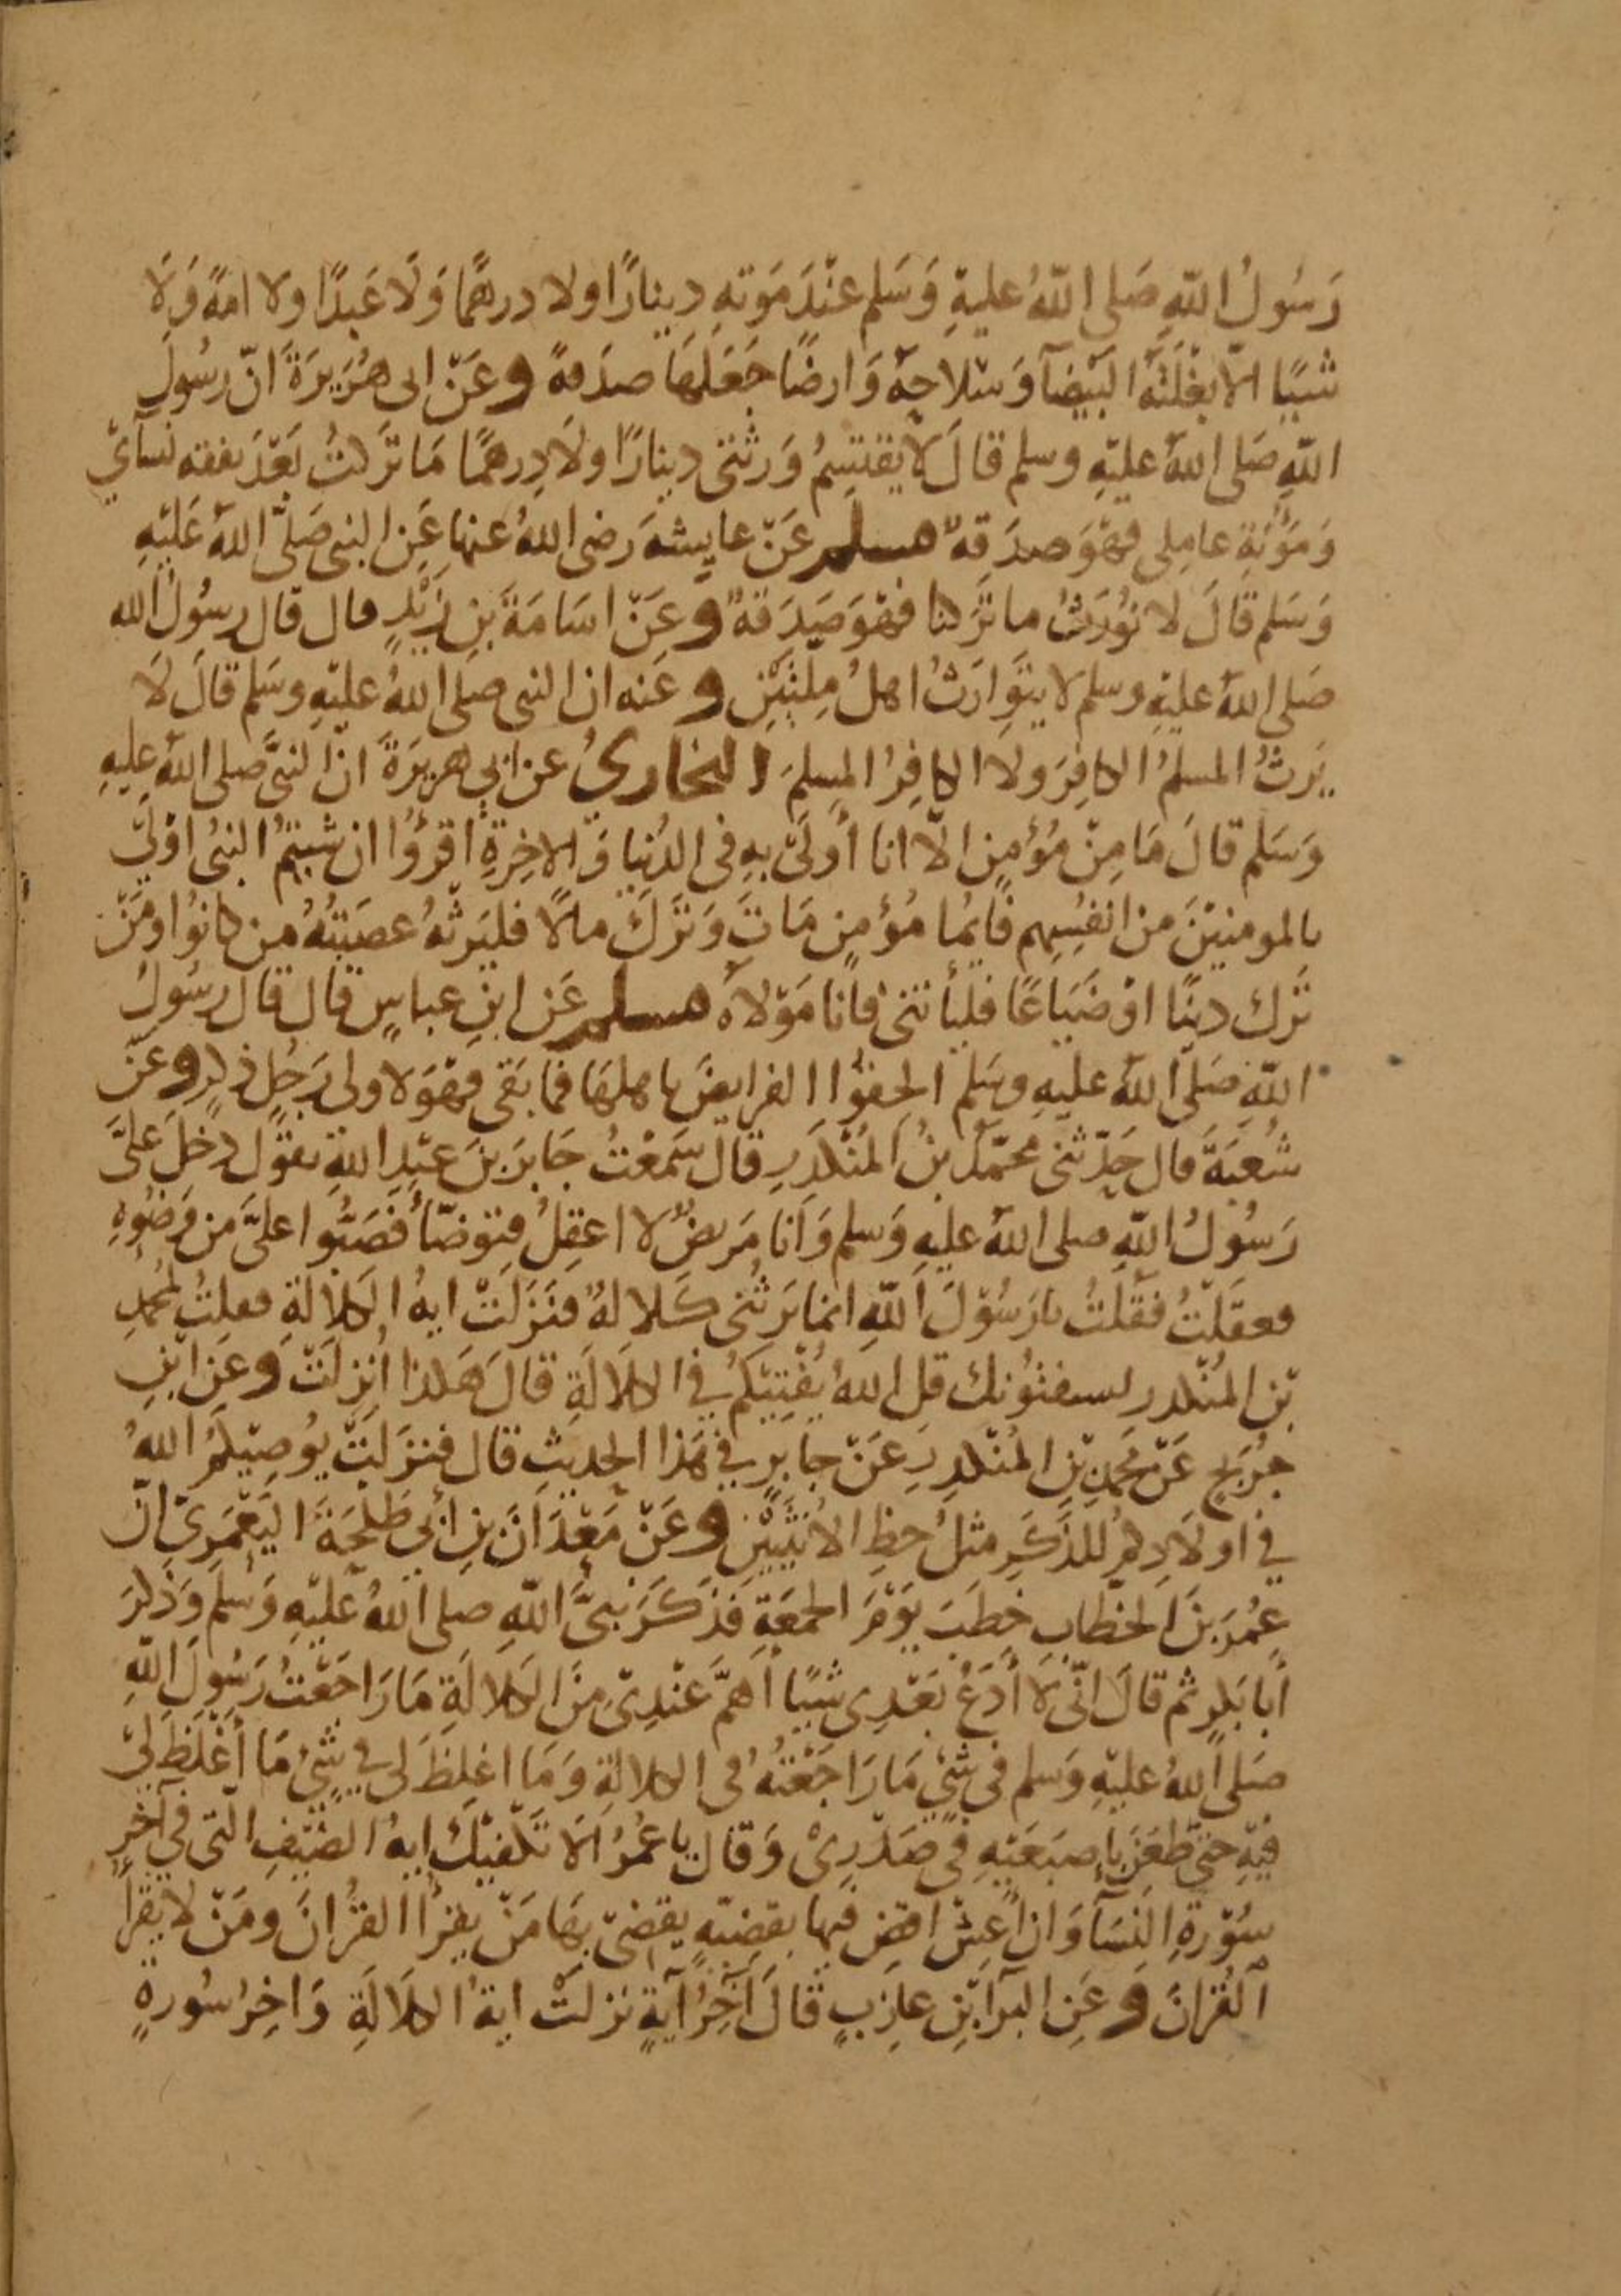 رَسُولُ اللّهِ صَلى اللّهُ عليهِ وَسَلم عنْدَ مَوَتهِ دينارًا ولا درهمًا وَلَا عَبدًا ولا امةً وَلَا
شيًا الّا بغْلَتَهُ البَيْضآ وَسْلاحِهُ وَارضًا جَعَلَهَا صدَقةً وعَنْ ابى هُرَيرَةَ انّ رسُولَ
اللّهِ صَلى اللّهُ عليْهِ وسلم قالَ لَا يقتَسِمُ وَرثتى دينارًا ولَا دِرهمًا مَا تَرَكتُ بَعْدَ نفقه نسآيْ
وَمَؤُنَةِ عامِلى فهُوَ صدَقةٌ مسلم عَنْ عايشهَ رَضى اللهُ عنها عَنِ النبى صَلىَّ اللّهُ عَليْهِ
وَسَلم قَالَ لا نوُرَثُ ما تَرَكنا فهْوَ صَدَقةٌ وعَنْ اسَامَةَ بنِ زَيْدٍ قال قال رسُولُ الله
صَلى اللّهُ عليْهِ وسلم لا يتَوَارَثُ اهلُ مِلتَيْنِ وعَنه ان النبى صلى اللهُ عليْهِ وسَلم قالَ لَا
يَرِثُ المسلمُ الكافِرَ ولا الكافِرُ المسلمَ البخارىُ عن ابي هريرَةَ انّ النبىَّ صلى اللّهُ عليهِ
وَسَلم قالَ مَا مِنْ مُؤْمِنٍ الّا انا أَولَىْ بهِ فى الدُنيا وَالاخِرةِ اقرؤُا ان شيتمُ النبىُ اوْليَ
بالمومنيْنَ من انفسِهِم فايمُا مُؤمنٍ مَاتَ وَتَرَكَ مالًا فليَرثهُ عصَبَتهُ من كانوُا ومَنْ
تَرك دينًا اوْ ضَيَاعًا فليأتنى فأنا مَوْلاهُ مسلم عَن ابنِ عباسٍ قال قال رسُولُ
اللّهِ صَلى اللّهُ عليهِ وسَلم الحِقوُا الفرايضَ باهلهَا فما بَقى فهْوَ لاولى رَجُلٍ ذكرٍ وعَنْ
شُعبَةَ قال حَدّثنى محمّدُ بنُ المُنْكدِرِ قالَ سَمعْتُ جَابرَ بنَ عبْدِ اللّهِ يقوْل دخَلَ علىَّ
رَسُوُلُ اللّهِ صلى اللّهُ عليهِ وَسلم وَأنا مَريضٌ لا اعقِلُ فتوَضّأ فَصَبُّوا علىَّ من وَضُوْهِ
فعقَلتُ فقلتُ يا رَسُوْلَ اللّهِ انما يَرِثنى كَلالهٌ فنَزَلَتْ ايهُ الكلالةِ فقلتُ لمُحمدِ
بْنِ المُنْكدر يستفتوُنك قل اللّهُ يُفْتِيْكمُ فى الكلالَةِ قالَ هَكذا انُزِلَتْ وعَنِ ابْنِ
جُرَيج عَنْ محُمدِ بْنِ المُنْكدِرِ عَنْ جَابرٍ في هَذا الحديثِ قال فنزَلَتْ يوُصيْكمُ اللّهُ
في اولَادِكمْ للذَكَرِ مثلُ حظِ الانْثيَيْنِ وعَنْ مَعْدَانَ بنِ أبي طَلْحَةَ اليَعْمَرِىْ انّ
عمُرَ بنَ الخطّابِ خطَبَ يوَمَ الجمعَةِ فذكَرَ نبىَّ اللّهِ صلى اللّهُ عليْهِ وَسلم وَذكرَ
أبا بَكرٍ ثم قالَ انّى لَا أدَعُ بَعْدِى شيًا أهمَّ عنْدِىْ مِنَ الكلالَةِ مَا رَاجَعْتُ رَسُولَ اللّهِ
صَلى اللّهُ عليْهِ وَسلم فى شىْءٍ مَا رَاجَعْتهُ فى الكلالةِ وَمَا اغلظَ لى في شىْءٍ مَا أغْلَظَ لىْ
فيْهِ حتىّ طعَنَ بإصبَعَيْهِ في صَدْرِىْ وَقال يا عمُرُ الَا تَكفيْكَ ايهُ الصَّيْفِ الّتى في آخر
سوُرةِ النسَآ وَان اعِشْ اقضِ فيها بقضيّهٍ يقضى بهَا مَنْ يقرأُ القرُانَ ومَنْ لا يَقرأ
القُرانَ وعَنِ البرَآ بْنِ عازِبٍ قالَ آخِرُ آيةٍ نزلَتْ ايةُ الكلَالَةِ وَاخِرُ سُورةٍ